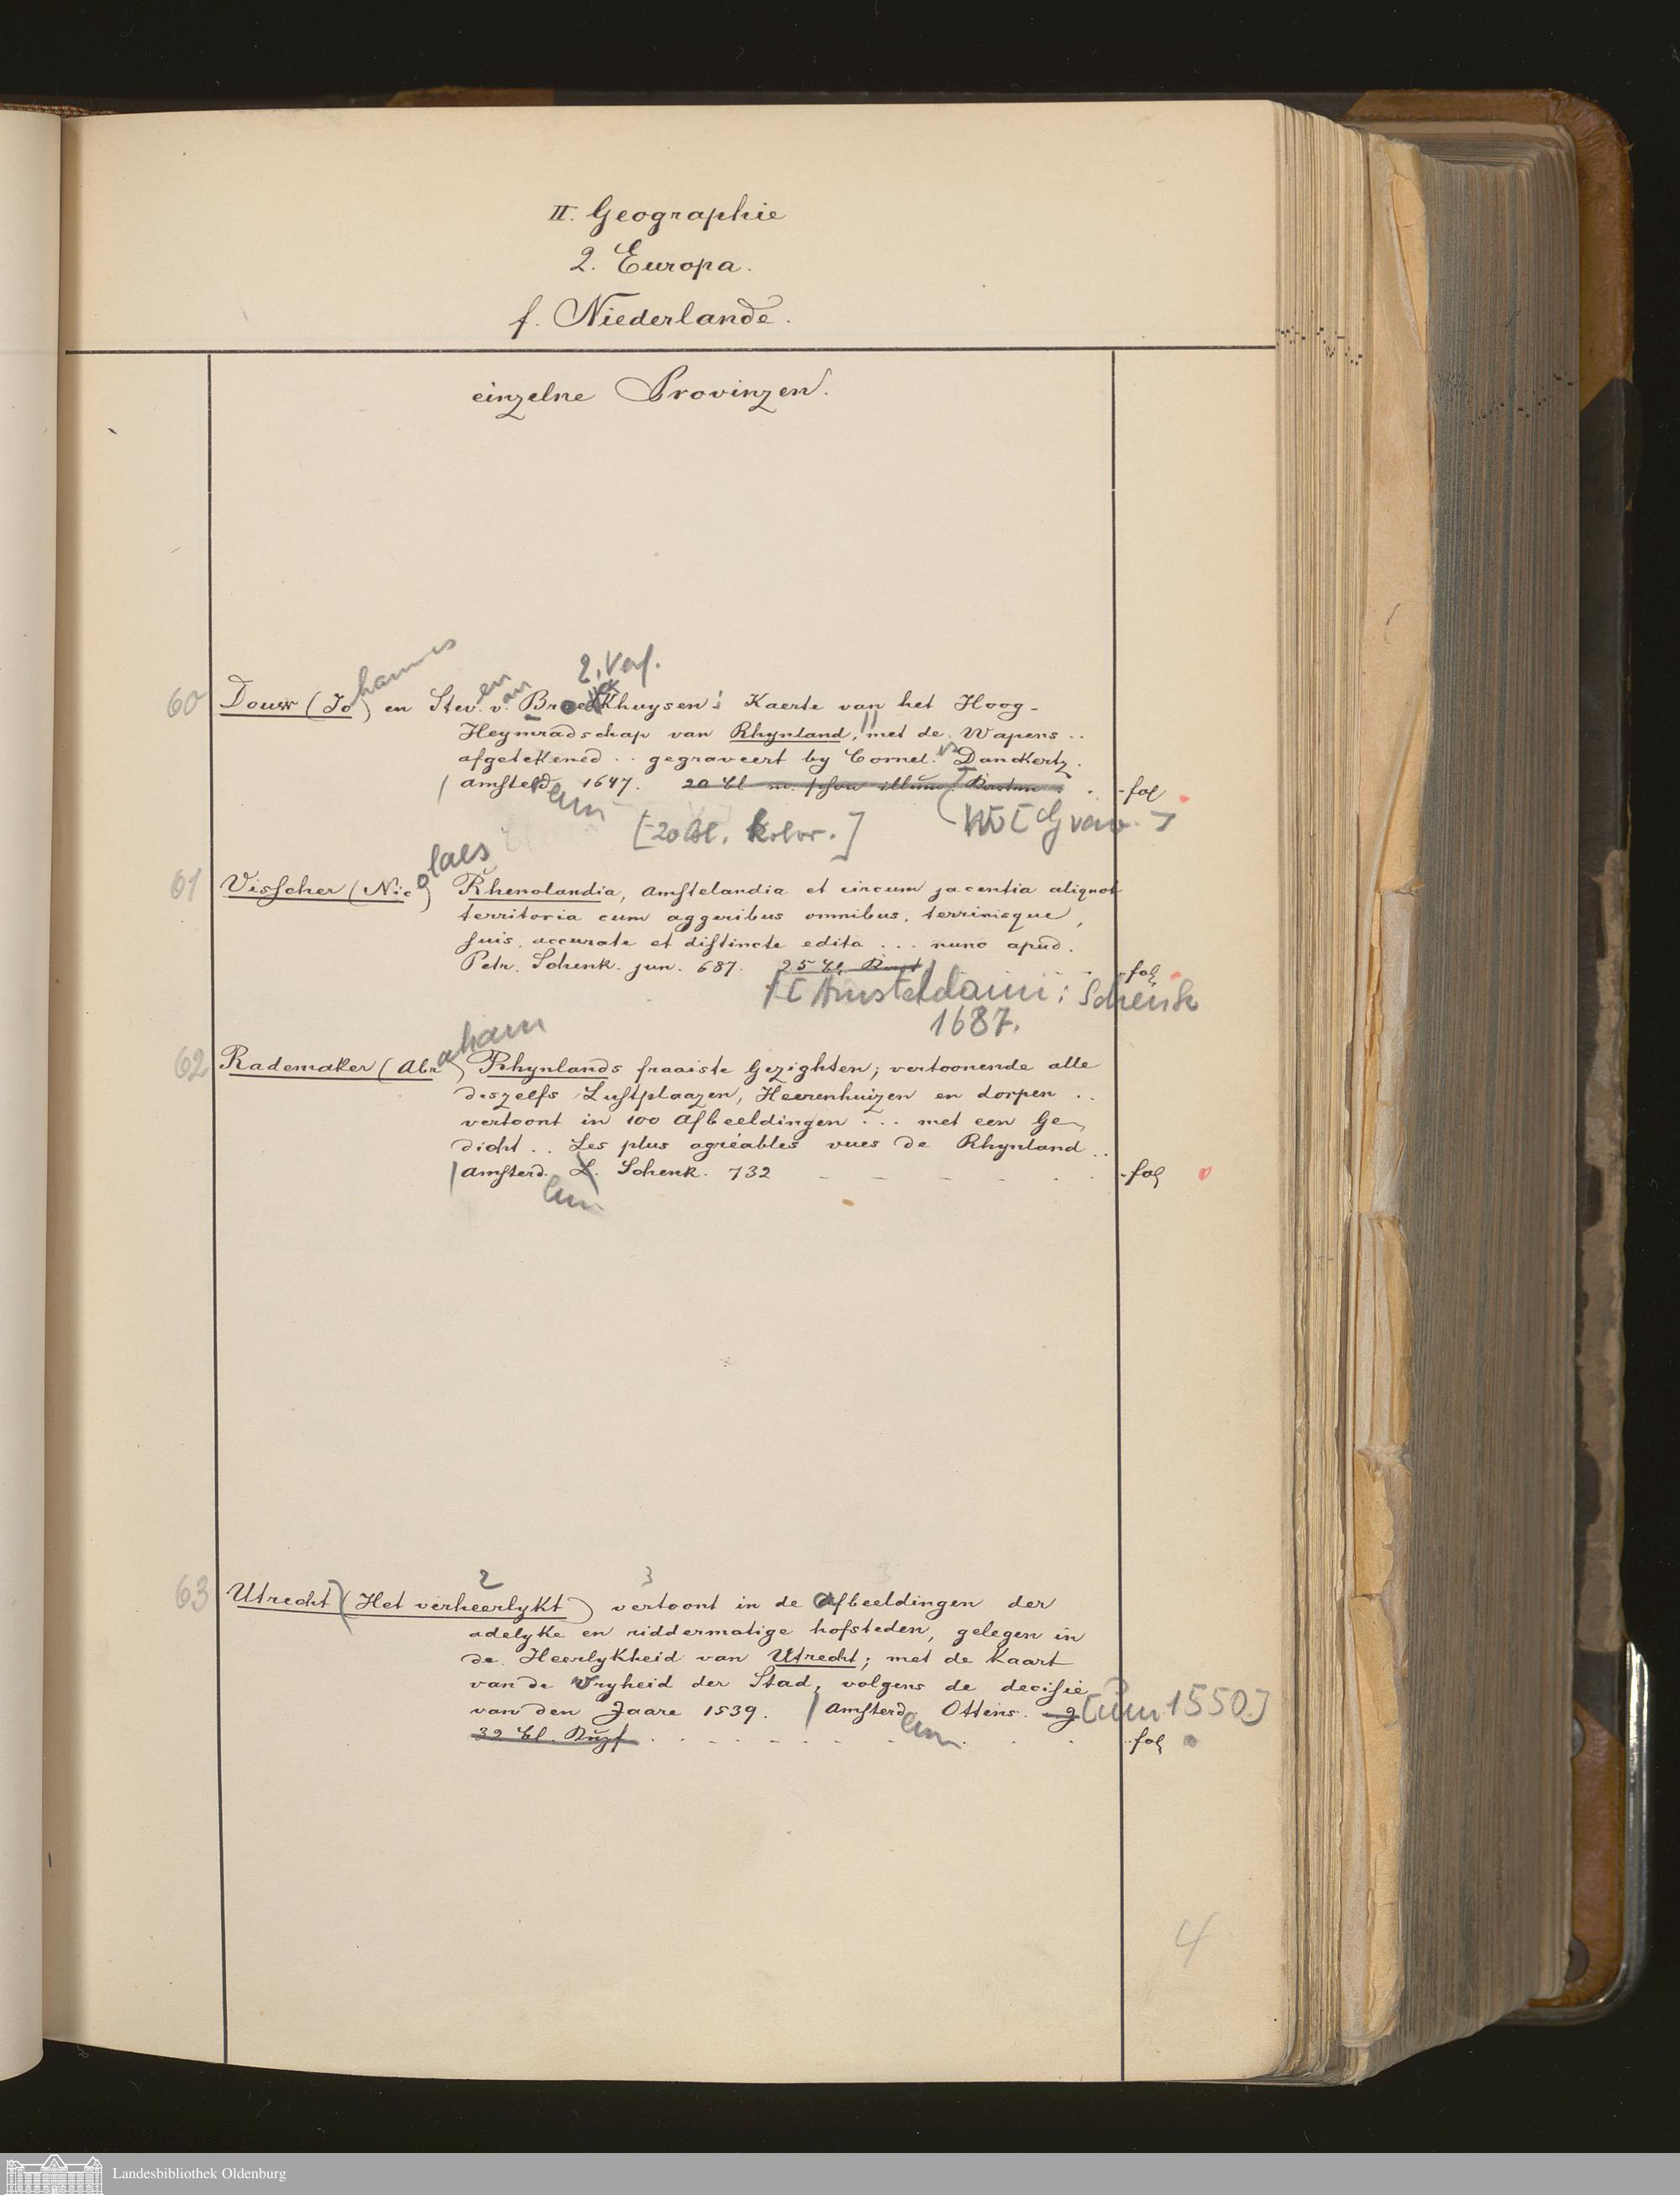 II. Geographie
2. Europa.
f. Niederlande.
einzelne Provinzen.
2. Verf.
60 Douw (Johannes) en Steven van Broeckhuysen: Kaerte van het Hoog-
Heymradschap van Rhynland, met de Wapens ..
afgetekened .. gegraveert by Cornel. Danckertz.
Amsteld 1647. 20 bl m. schon illum. fol
[20 Bl. kolor.]
61 Visscher (Nicolaes) Rhenolandia, Amstelandia et circum jacentia aliquot
territoria cum aggeribus omnibus, terrinisque,
suis, accurate et distincte edita ... nunc apud.
Petr. Schenk. jun. 687. 25 bl. fol
[Amsteldami: Schenk
1687.
62 Rademaker (Abraham) Rhynlands fraaiste Gezighten; vertoonende alle
deszelfs Lustplaazen, Heerenhuizen en dorpen ..
vertoont in 100 Afbeeldingen ... met een Ge
dicht .. Les plus agréables vues de Rhynland ..
Amsterd. L. Schenk. 732 fol
2 3 3
63 Utrecht (Het verheerlykt) vertoont in de Afbeeldingen der
adelyke en riddermatige hofsteden, gelegen in
de Heerlykheid van Utrecht; met de Kaart
van de Vryheid der Stad, volgens de decisie
van den Jaare 1539. Amsterd Ottens. [um 1550]
32 bl. fol
4
Landesbibliothek Oldenburg